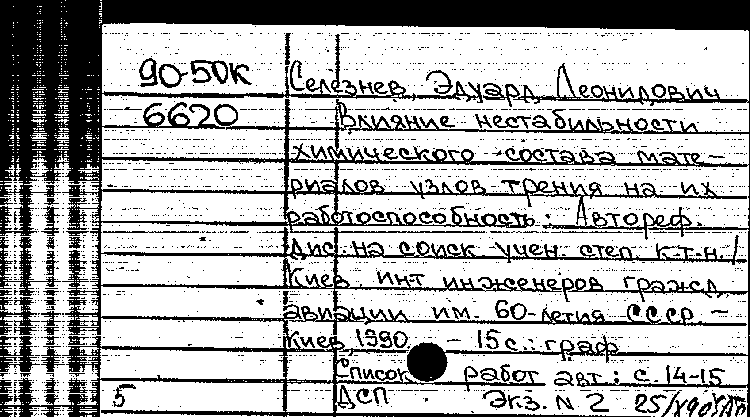 90-50К Селезнев, Эдуард Леонидович
6620 Влияние нестабильности
химического состава мате-
риалов узлов трения на их
работоспособность: Автореф.
дис. на соиск. учен. степ. к.т.н. /
Киев. инт инженеров гражд.
авиации им. 60-летия СССР. -
Киев, 1990 - 15 с.: граф.
Список работ авт.: с. 14-15
5 ДСП. Экз. N 2